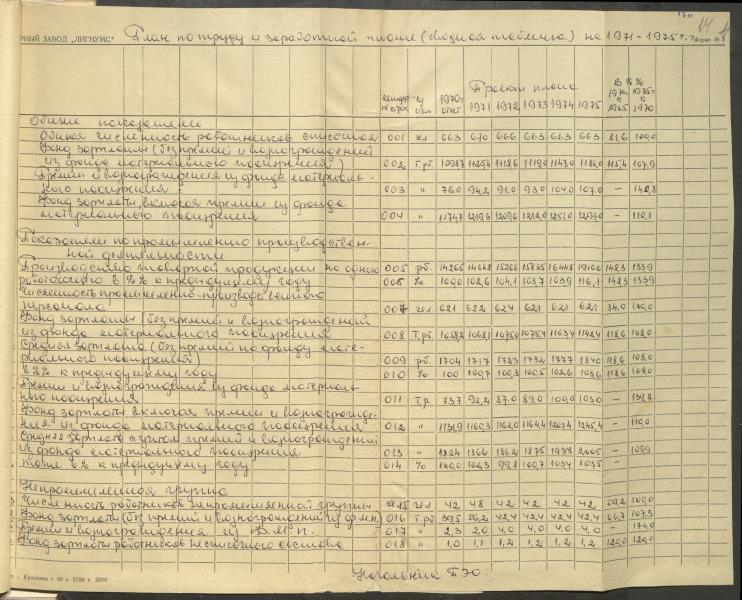 14
РНЫЙ ЗАВОД „ЛИГНУМС" План по труду и заработной плате (сводная таблица) на 1971-1975 г.г. Форма №
шифр №стр. ед. изм. 1970г. отчет Проект плана 1971 1972 1973 1974 1975 в %% 1970г. к 1965 1975г. к 1970
Общие показатели
Общая численность работников списочная 001 чел 663 670 666 663 663 663 81,6 100,0
Фонд зарплаты (без премий и вознаграждений
из фонда материального поощрения) 002 Т.рб. 1098,7 1125,4 1118,6 1119,0 1147,0 1186,0 115,4 107,9
Премии и вознаграждения из фонда материаль-
ного поощрения 003 " 76,0 94,2 91,0 93,0 104,0 107,0 — 140,8
Фонд зарплаты, включая премии из фонда
материального поощрения 004 " 1174,7 1219,6 1209,6 1212,0 1251,0 1293,0 — 110,1
Показатели по промышленно производствен-
ной деятельности
Производство товарной продукции на одного 005 рб. 14265 14648 15266 15835 16448 19102 148,3 133,9
работающего в %% к предыдущему году 006 % 100,0 102,6 104,1 103,7 103,9 116,1 148,3 133,9
Численность промышленно-производственного
персонала 007 чел. 621 622 624 621 621 621 84,0 100,0
Фонд зарплаты (без премий и вознаграждений
из фонда материального поощрения 008 Т.рб. 1058,2 1068,1 1075,0 1075,4 1103,4 1142,4 118,6 108,0
Средняя зарплата (без премий по фонду мате-
риального поощрения) 009 рб. 1704 1717 1723 1732 1777 1840 118,6 108,0
в %% к предыдущему году 010 % 100 100,7 100,3 100,5 102,6 103,6 118,6 108,0
Премии и вознаграждения из фонда материаль-
ного поощрения 011 Т.р. 73,7 92,2 87,0 89,0 100,0 103,0 — 139,8
Фонд зарплаты включая премии и вознагражде-
ния из фонда материального поощрения 012 " 1131,9 1160,3 1162,0 1164,4 1203,4 1245,4 — 110,0
Средняя зарплата с учетом премий и вознаграждений
из фонда материального поощрения 013 " 1824 1866 1862 1875 1938 2005 — 109,9
тоже в % к предыдущему году 014 % 100,0 102,3 99,8 100,7 103,4 103,5 —
Непромышленная группа
Численность работников непромышленной группы 015 чел 42 48 42 42 42 42 59,2 100,0
Фонд зарплаты (без премий и вознаграждений из ф.м.п.) 016 Т.рб 39,5 56,2 42,4 42,4 42,4 42,4 66,7 107,3
Премии и вознаграждения из Ф.М.П. 017 " 2,3 2,0 4,0 4,0 4,0 4,0 — 174,0
Фонд зарплаты работников несписочного состава 018 " 1,0 1,1 1,2 1,2 1,2 1,2 120,0 120,0
Начальник ПЭО
г. Краслава г. 69 з. 2786 т. 2000